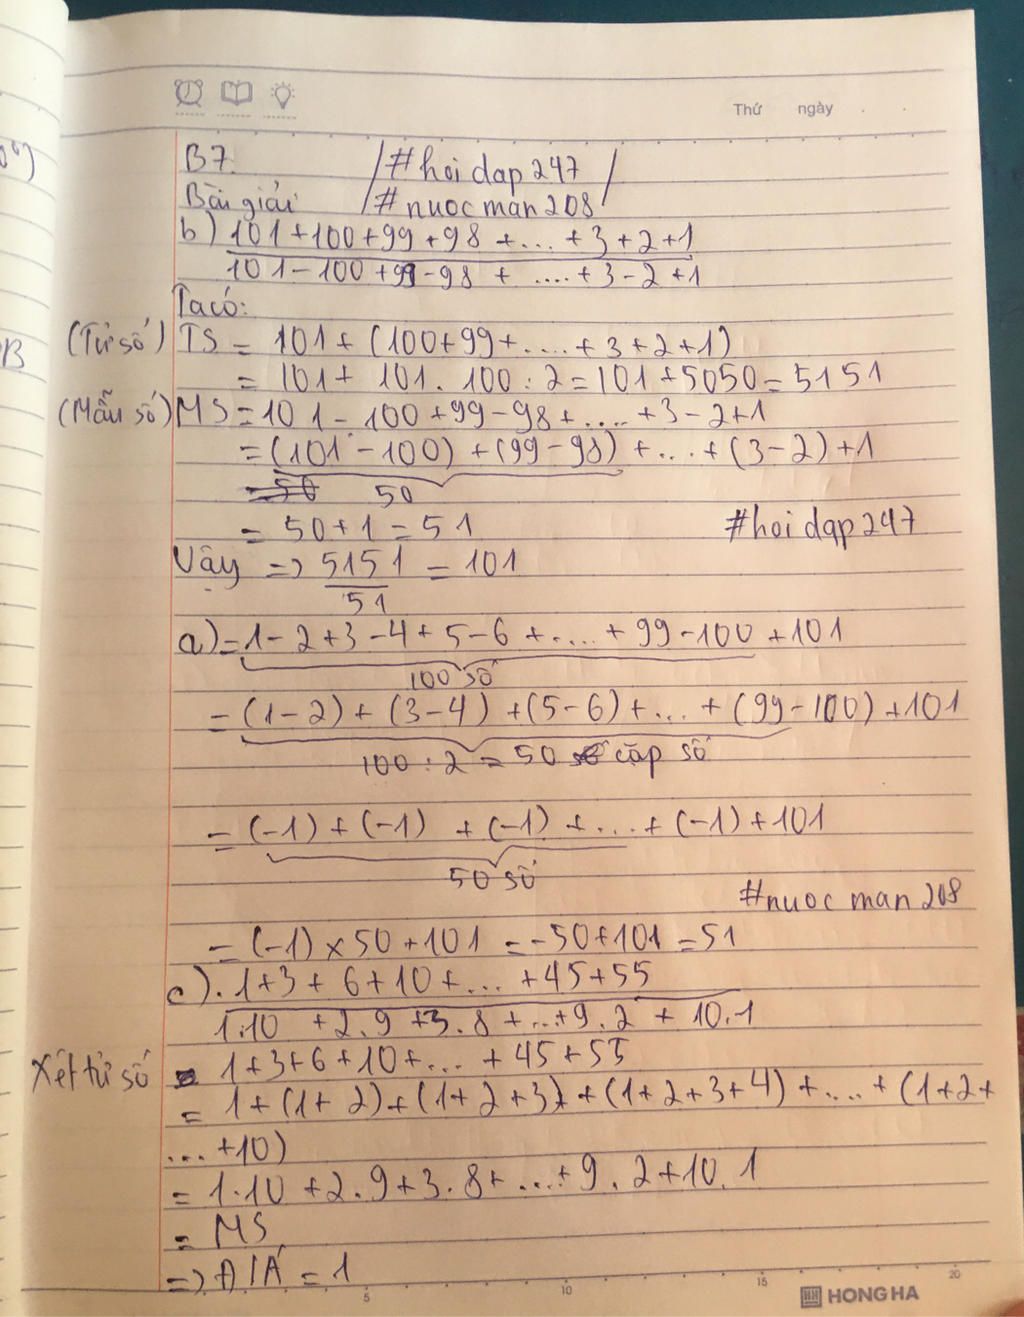 Thứ ngày
B7. /#hoi dap 247/
Bài giải /#nuoc man 208/
b) 101+100+99+98+...+3+2+1
101-100+99-98+....+3-2+1
Ta có:
(Tử số) TS = 101+(100+99+....+3+2+1)
= 101+ 101.100:2=101+5050=5151
(Mẫu số) MS=101-100+99-98+....+3-2+1
=(101-100)+(99-98)+...+(3-2)+1
50
= 50+1=51 #hoi dap 247
Vậy => 5151 = 101
51
a)=1-2+3-4+5-6+....+99-100+101
100 số
=(1-2)+(3-4)+(5-6)+...+(99-100)+101
100:2=50 cặp số
=(-1)+(-1)+(-1)+...+(-1)+101
50 số
#nuoc man 208
=(-1)×50+101=-50+101=51
c). 1+3+6+10+...+45+55
1.10+2.9+3.8+...+9.2+10.1
Xét tử số = 1+3+6+10+...+45+55
= 1+(1+2)+(1+2+3)+(1+2+3+4)+....+(1+2+
...+10)
= 1.10+2.9+3.8+...+9.2+10.1
= MS
=> = 1
5 10 15 20
HONG HA